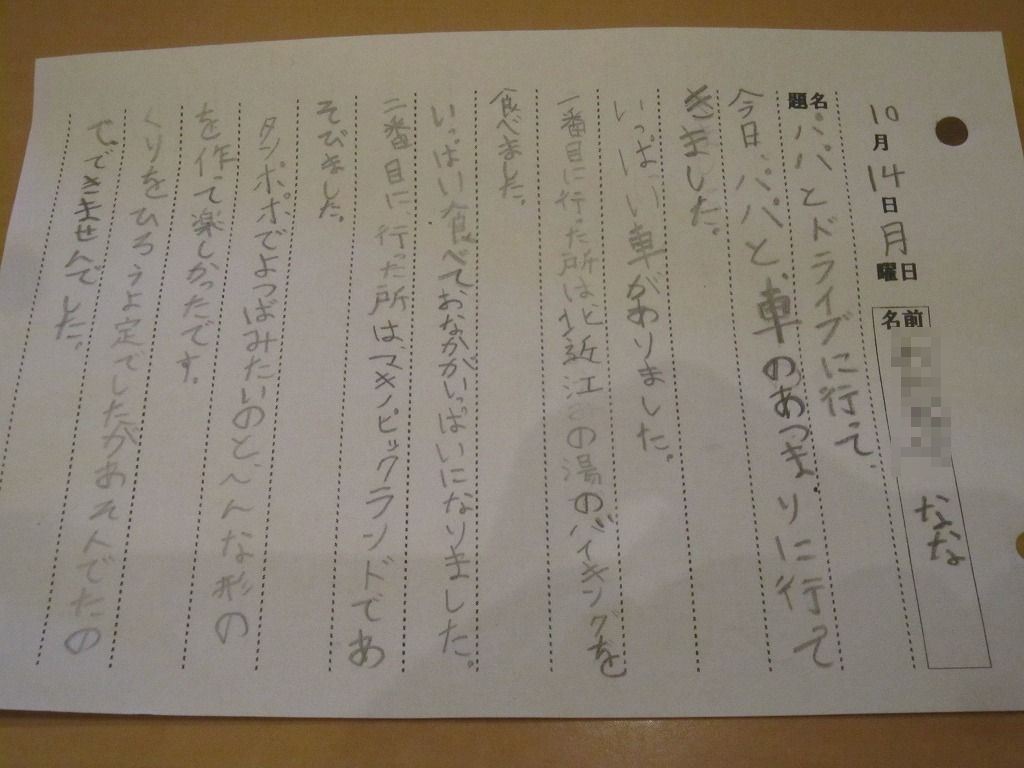 10月14日月曜日
名前 なな
題名 パパとドライブに行て、
今日、パパと、車のあつまりに行って
きました。
いっぱい車がありました。
一番目に行った所は北近江の湯のバイキングを
食べました。
いっぱい食べておなががいっぱいになりました。
二番目に、行った所はマキノピックランドであ
そびました。
タンポポでよつばみたいのと、へんな形の
を作て楽しかったです。
くりをひろうよ定でしたがあそんでたの
で、できませんでした。